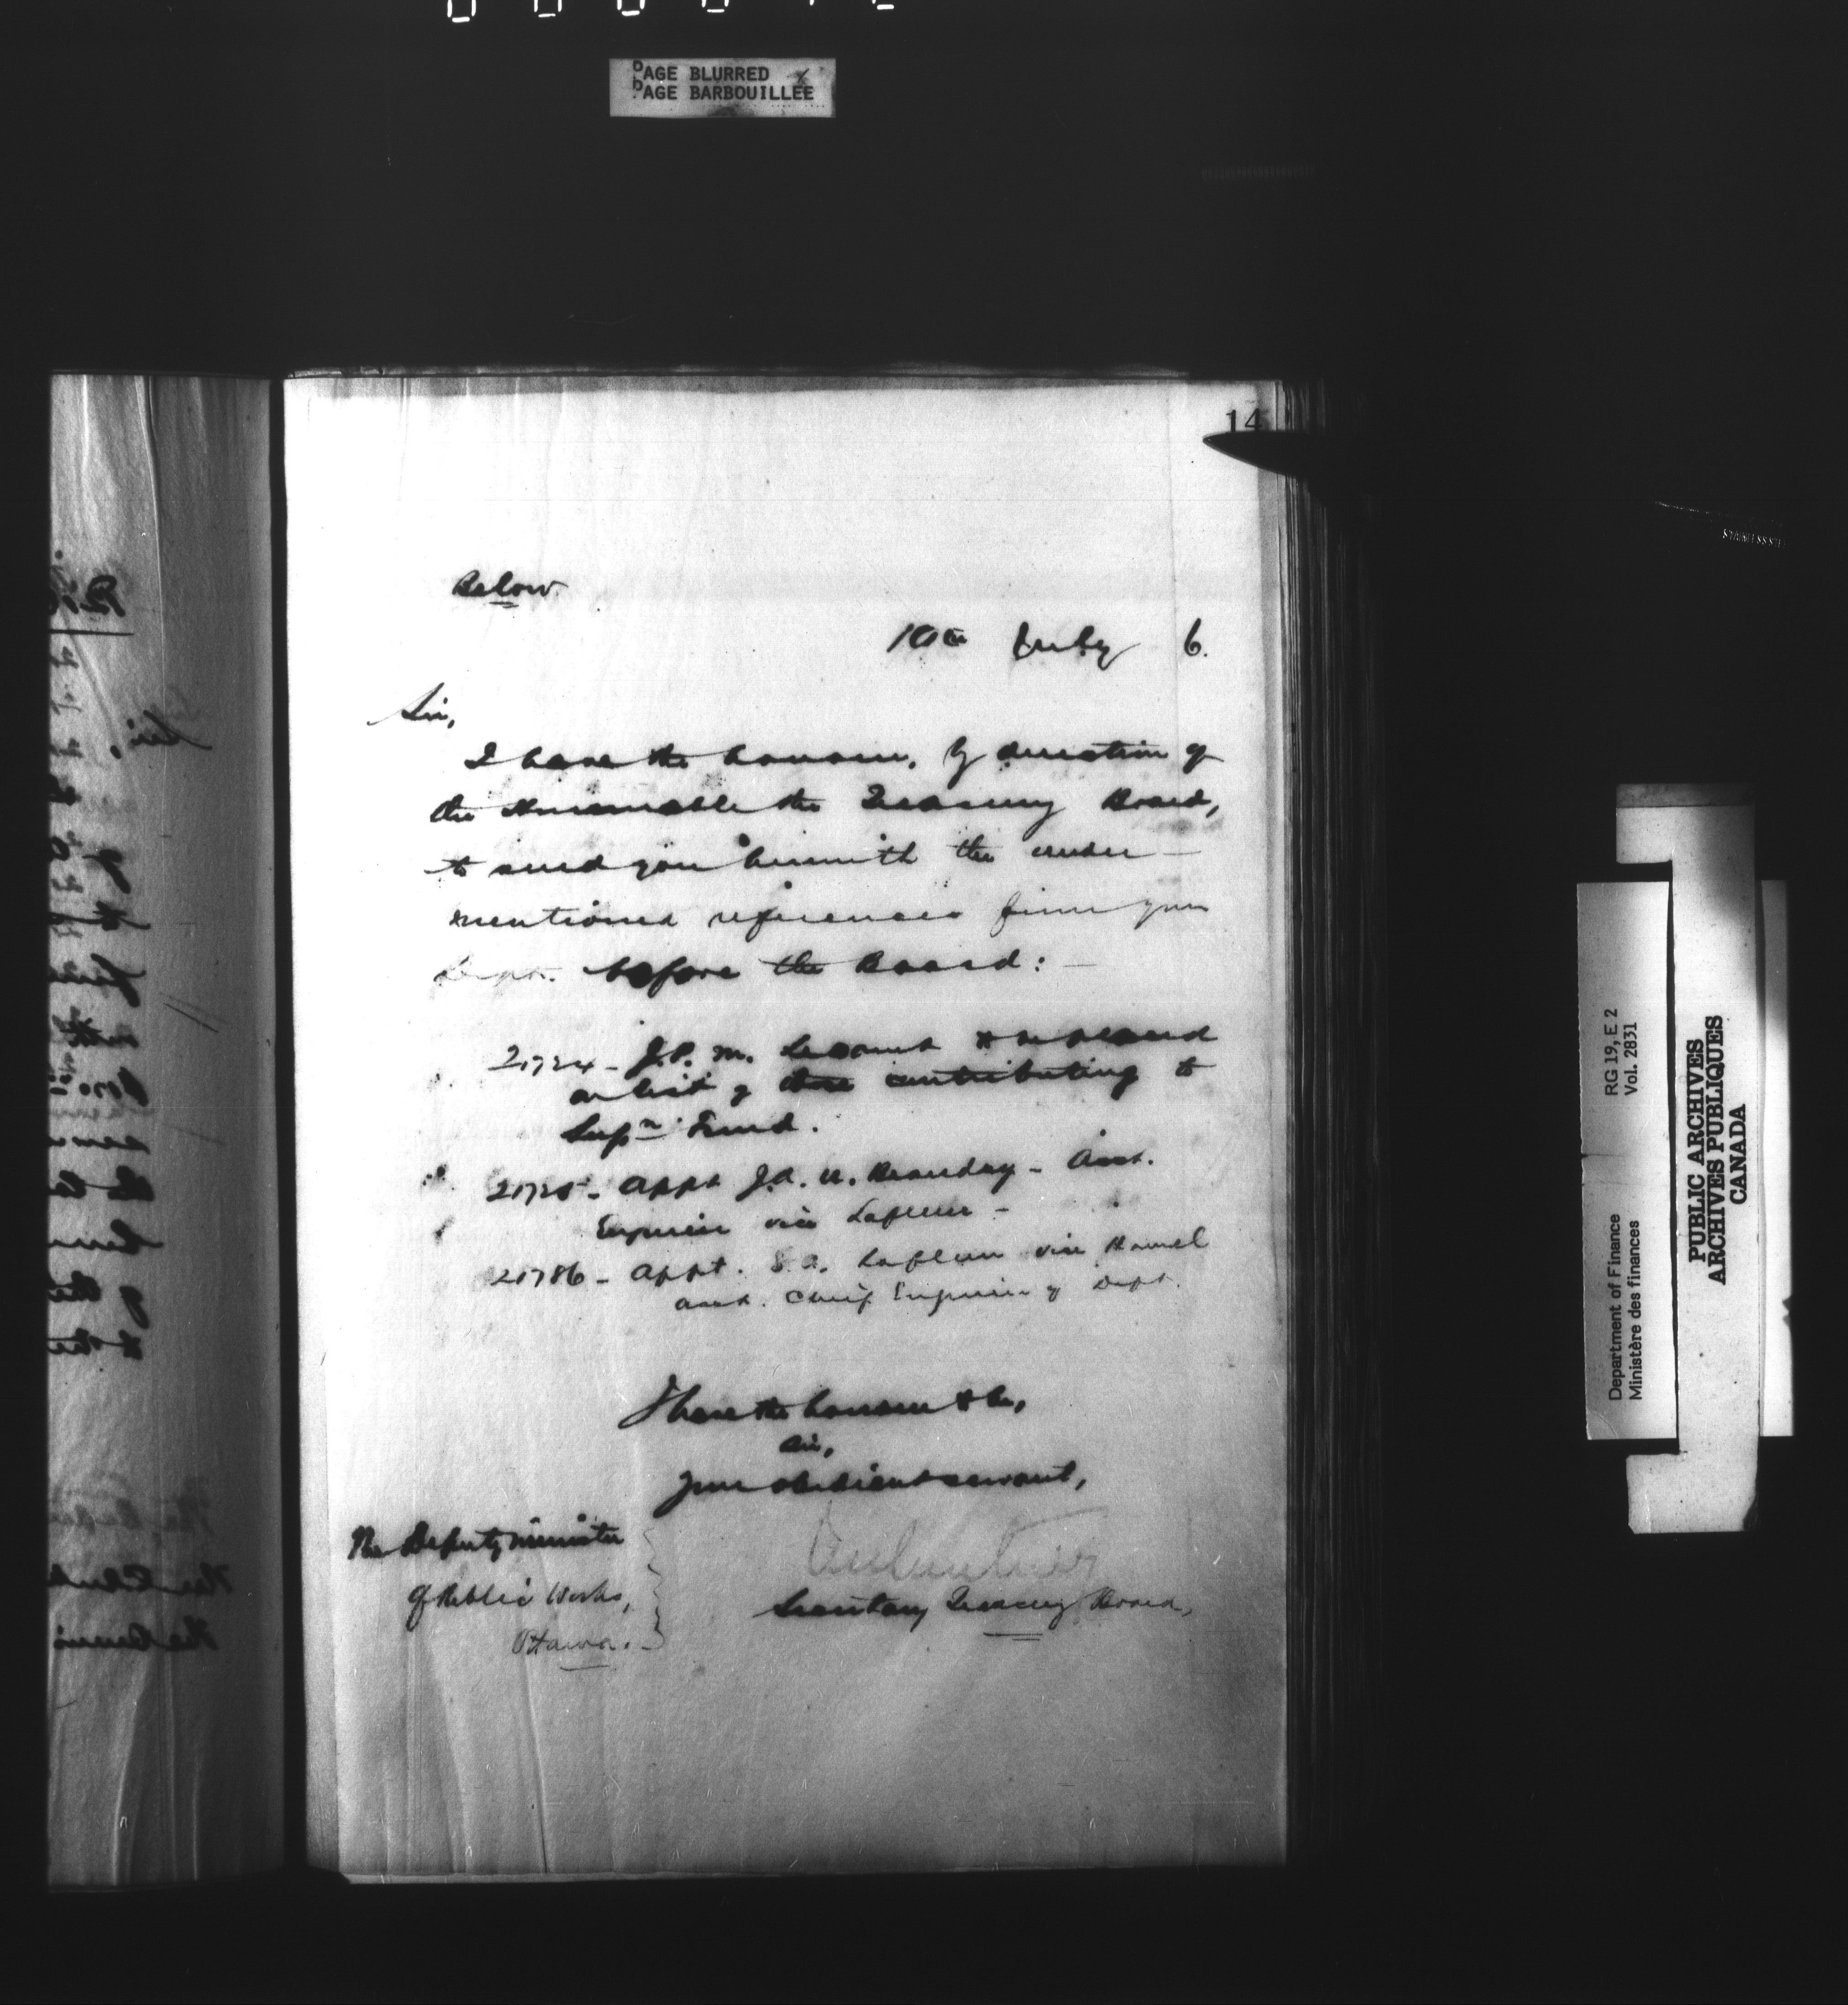 PAGE BLURRED
PAGE BARBOUILLEE
14
Below.
10th July 6.
Sir,
I have the honour, by direction of
the Honourable the Treasury Board,
to send you herewith the under-
mentioned references from your
Dept. before the Board:-
21724 - J.P.M. to be placed
on list of those contributing to
Supn Fund.
21725 - Appt J.A. U. Beaudry - Asst.
Engineer vice Lafleur -
21786 - Appt. S.J. Lafleur vice Hamel
Asst. Chief Engineer of Dept.
I have the honour to be,
Sir,
Your obedient servant,
The Deputy Minister
of Public Works,
Ottawa.
Secretary Treasury Board,
RG 19, E 2
Vol. 2831
Department of Finance
Ministère des finances
PUBLIC ARCHIVES
ARCHIVES PUBLIQUES
CANADA